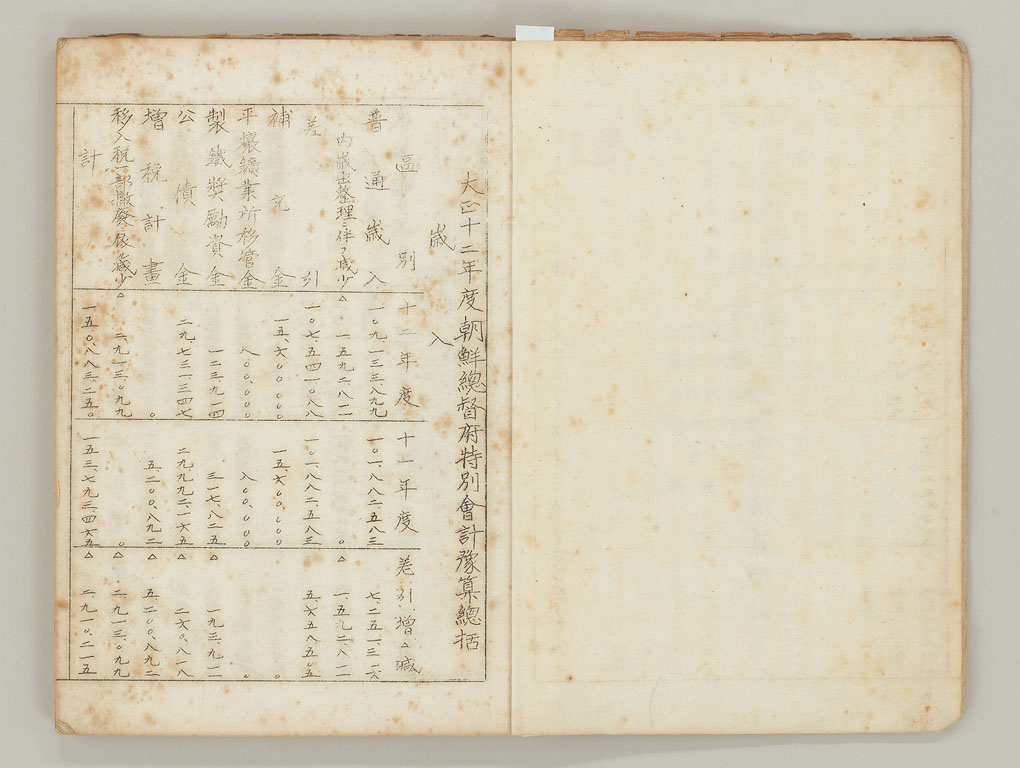 大正十二年度朝鮮總督府特別會計豫算總括
歳入
區別 十二年度 十一年度 差引增△減
普通歳入 一〇九、一三三、八九九 一〇一、八八二、五八三 七、二五一、三一六
内歳出整理ニ伴フ減少 △一、五九二、八一一 〇 △一、五九二、八一一
差引 一〇七、五四一、〇八八 一〇一、八八二、五八三 五、六五八、五〇五
補充金 一五、六〇〇、〇〇〇 一五、六〇〇、〇〇〇 〇
平壤鑛業所移管金 八〇〇、〇〇〇 八〇〇、〇〇〇 〇
製鐵奬勵資金 一二三、九一四 三一七、八二五 △一九三、九一一
公債金 二九、七三一、三四七 二九、九九二、一六五 △二六〇、八一八
增税計畫 〇 五、二〇〇、八九二 △五、二〇〇、八九二
移入税一部撤廢ニ依ル減少 △二、九一三、〇九九 〇 △二、九一三、〇九九
計 一五〇、八八三、二五〇 一五三、七九三、四六五 △二、九一〇、二一五